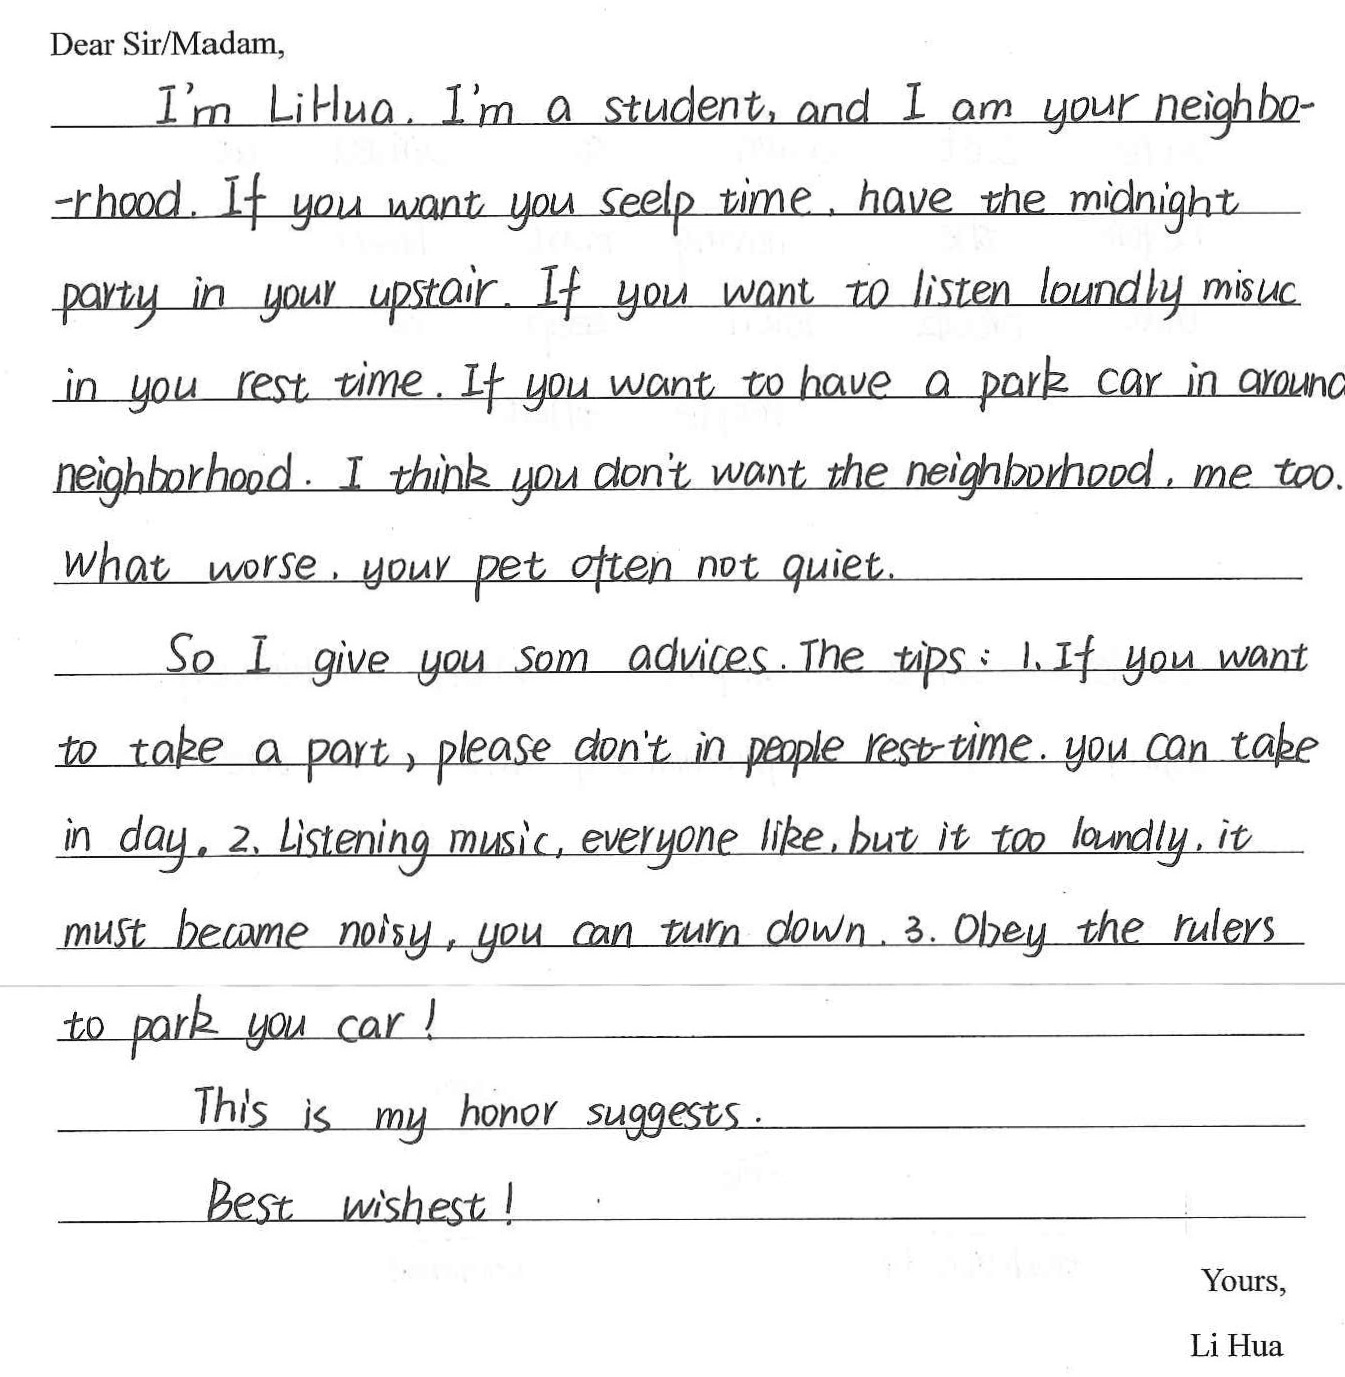 Dear Sir/Madam,
I'm LiHua. I'm a student, and I am your neighbo-
-rhood. If you want you seelp time, have the midnight
party in your upstair. If you want to listen loundly misuc
in you rest time. If you want to have a park car in around
neighborhood. I think you don't want the neighborhood, me too.
What worse, your pet often not quiet.
So I give you som advices. The tips: 1. If you want
to take a part, please don't in people rest time. you can take
in day. 2. Listening music, everyone like, but it too loundly, it
must became noisy, you can turn down. 3. Obey the rulers
to park you car!
This is my honor suggests.
Best wishest!
Yours,
Li Hua